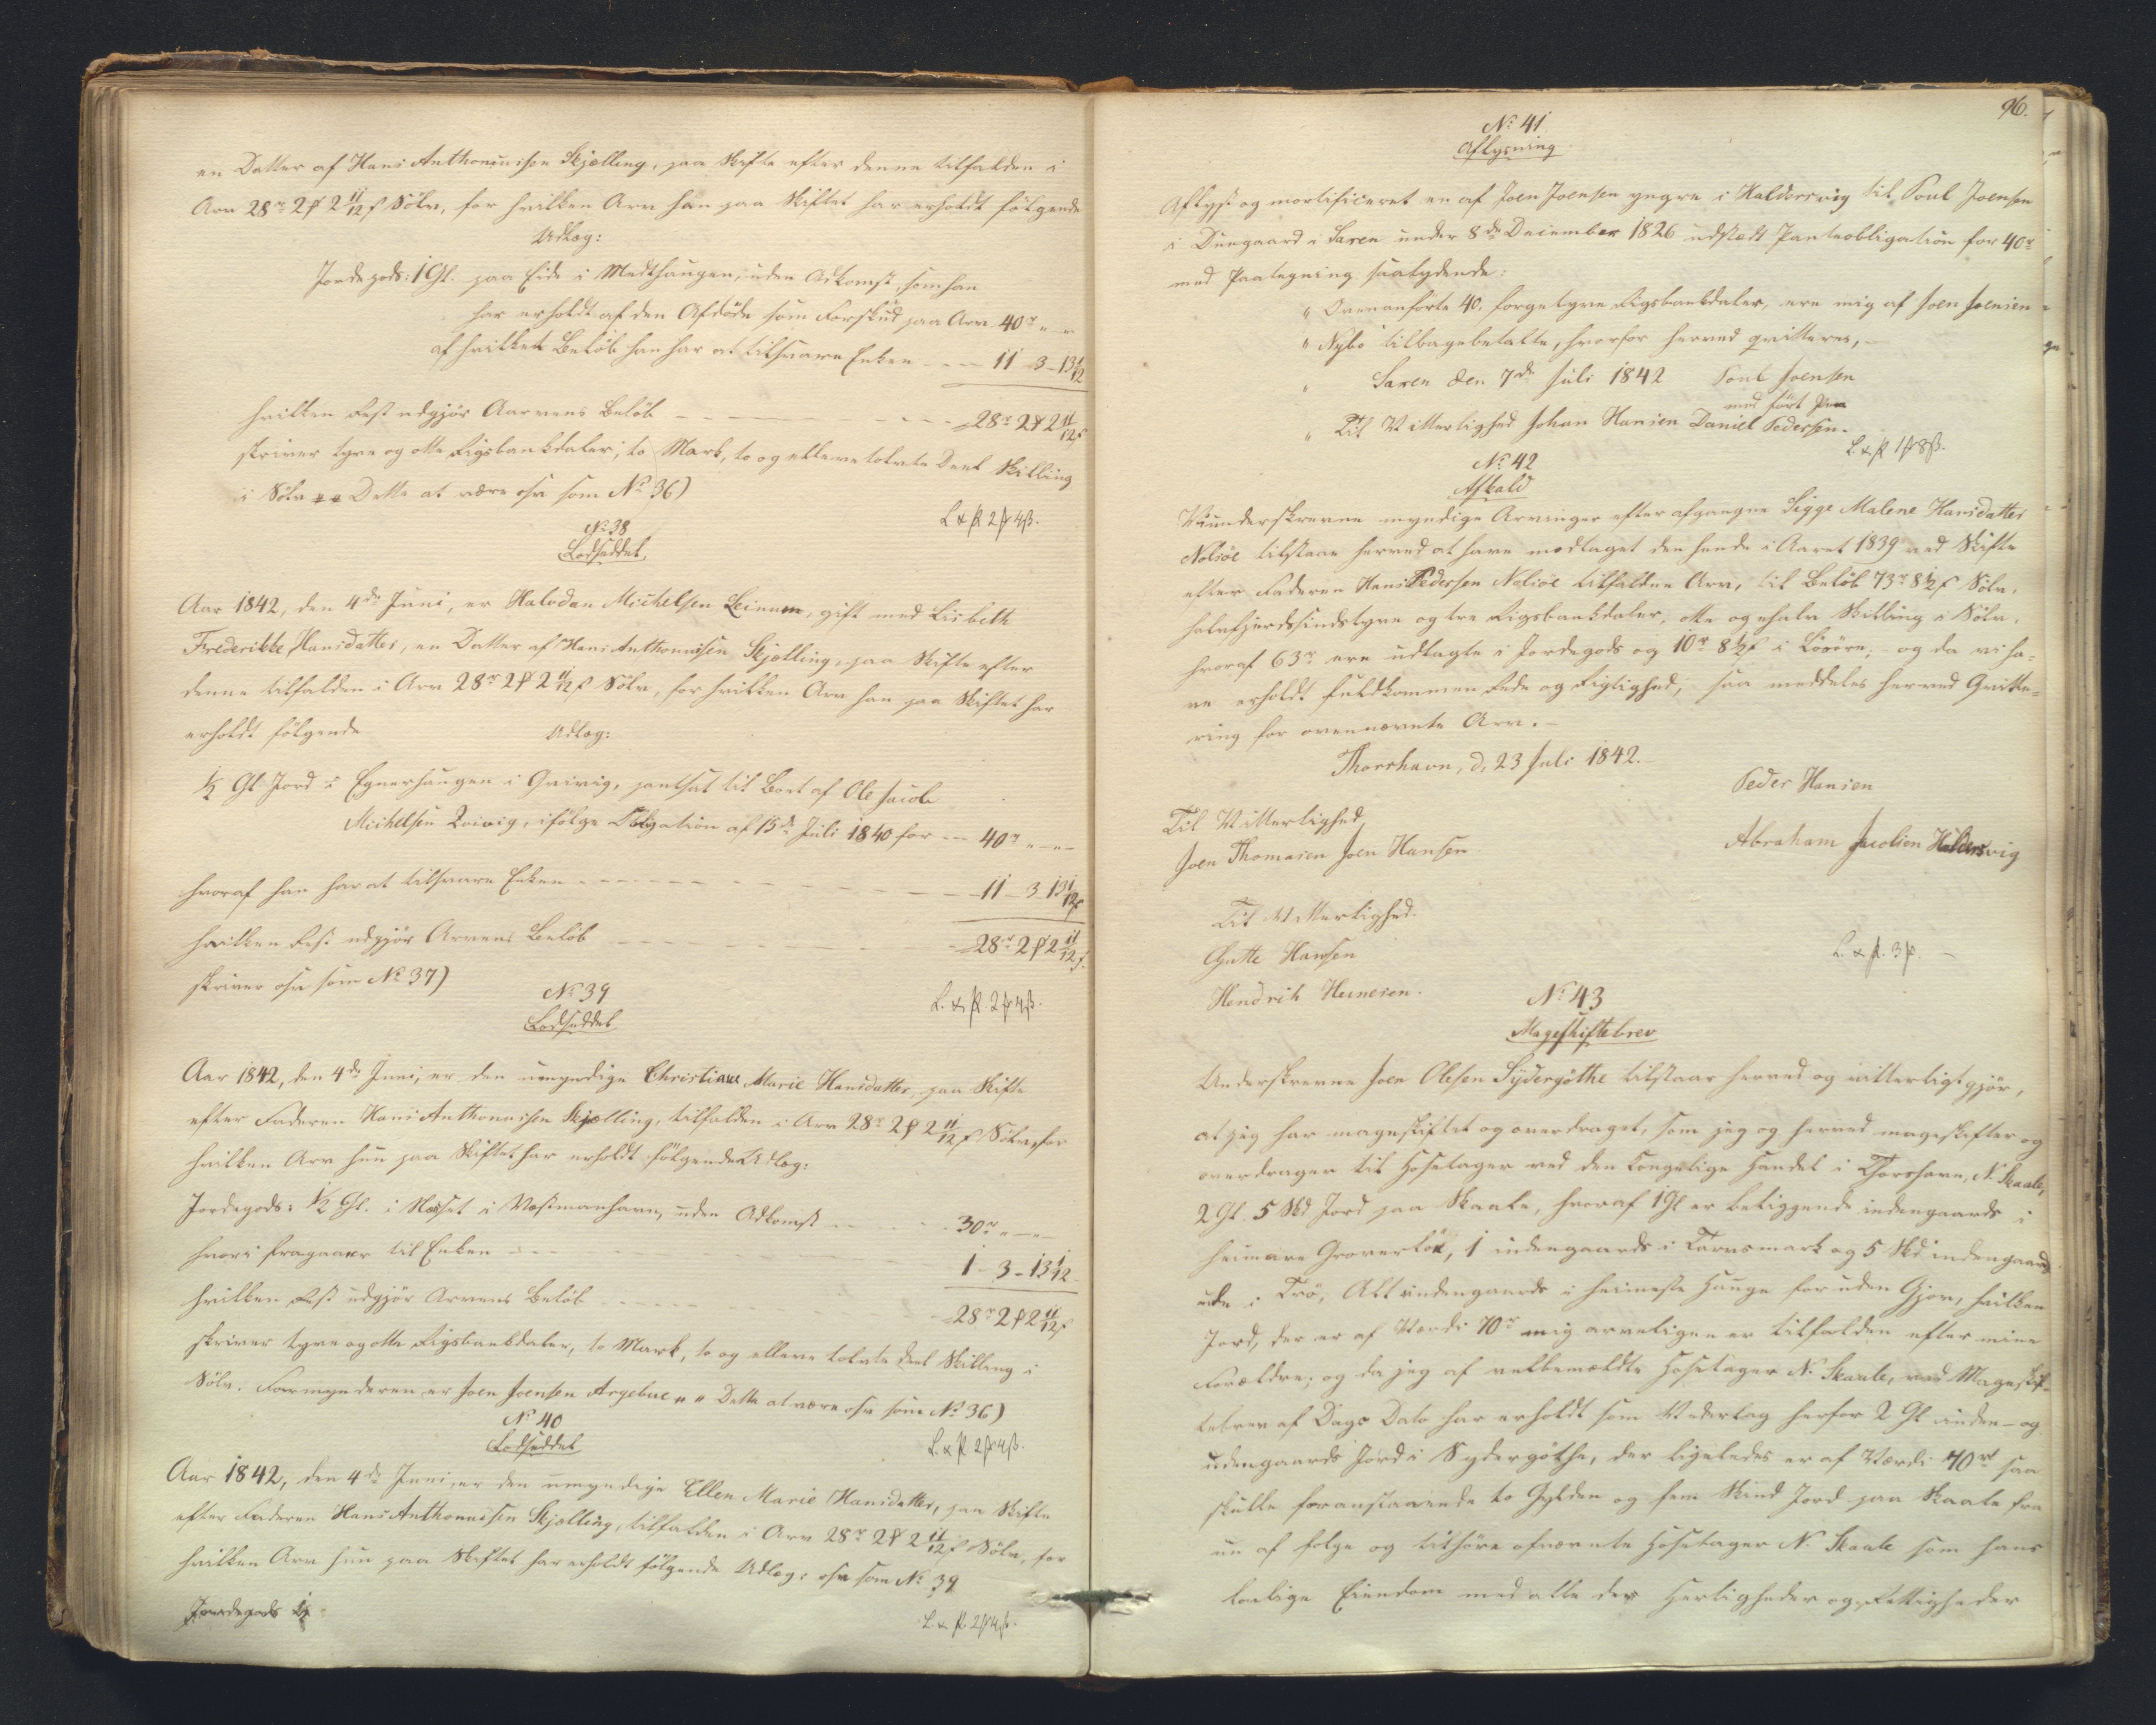 en Datter af Hans Anthoniussen Skjælling, paa Skifte efter denne tilfalden i
Arv 28 rd 2 ₻ 2 11/12 ß Sölv, for hvilken Arv han paa Skiftet har erholdt fölgende
Udlæg:
Jordegods: 1 Gl. paa Eide i Medthaugen, uden Adkomst, som han
har erholdt af den Afdöde som Forskud paa Arv 40 rd „ – „
af hvilket Belöb han har at tilsvare Enken – – – 11 – 3 – 13 1/12
hvilken Rest udgjör Aarvens Belöb – – – 28 rd 2 ₻ 2 11/12 ß
skriver tyve og otte Rigsbankdaler, to Mark, to og elleve tolvte Deel Skilling
i Sölv „ „ Dette at være osv som No 36)
L & P 2 ₻ 4 ß.
No 38
Lodseddel.
Aar 1842, den 4de Juni, er Halvdan Michelsen Leinum, gift med Lisbeth
Frederikke Hansdatter, en Datter af Hans Anthoniussen Skjælling, paa Skifte efter
denne tilfalden i Arv 28 rd 2 ₻ 2 11/12 ß Sölv, for hvilken Arv han paa Skiftet har
erholdt fölgende Udlæg:
1/2 Gl Jord i Egnerhaugen i Qvivig, pantsat til Boet af Ole Jacob
Michelsen Qvivig, ifölge Obligation af 15de Juli 1840 for – – 40 rd „ – „ –
hvoraf han har at tilsvare Enken – – – 11 – 3 – 13 1/12 ß
hvilken Rest udgjör Arvens Belöb – – – 28 rd 2 ₻ 2 11/12 ß.
skriver osv som No 37)
L. & P. 2 ₻ 4 ß.
No 39
Lodseddel
Aar 1842, den 4de Juni, er den umyndige Christiane Marie Hansdatter, paa Skifte
efter Faderen Hans Anthoniussen Skjælling, tilfalden i Arv 28 rd 2 ₻ 2 11/12 ß Sölv, for
hvilken Arv hun paa Skiftet har erholdt fölgende Udlæg:
Jordegods: 1/2 Gl. i Nesset i Vestmanhavn, uden Adkomst – – – 30 rd „ – „ –
hvori fragaaer til Enken – – – 1 – 3 – 13 1/12
hvilken Rest udgjör Arvens Belöb – – – 28 rd 2 ₻ 2 11/12 ß
skriver tyve og otte Rigsbankdaler, to Mark, to og elleve tolvte deel Skilling i
Sölv. Formynderen er Joen Joensen Argeboe „ „ Dette at være osv som No 36)
No 40
Lodseddel
L. & P. 2 ₻ 4 ß.
Aar 1842, den 4de Juni, er den umyndige Ellen Marie Hansdatter, paa Skifte
efter Faderen Hans Anthoniussen Skjælling, tilfalden i Arv 28 rd 2 ₻ 2 11/12 ß Sölv, for
hvilken Arv hun paa Skiftet har erholdt fölgende Udlæg: osv som No 39
Jordegods
L & P. 2 ₻ 4 ß.
96.
No 41
Aflysning
Aflyst og mortificeret en af Joen Joensen yngre i Haldersvig til Poul Joensen
i Duugaard i Saxen under 8de December 1826 udstædt Panteobligation for 40 rd
med Paategning saalydende:
„ Ovenanförte 40, förgetyve Rigsbankdaler, ere mig af Joen Joensen
„ Nybö tilbagebetalte, hvorfor herved qvitteres, –
„ Saxen den 7de Juli 1842 Poul Joensen
med fört Pen
„ Til Vitterlighed Johan Hansen Daniel Pedersen.
L. & P. 1 ₻ 8 ß.
No 42
Afkald
Vi underskrevne myndige Arvinger efter afgangne Sigge Malene Hansdatter
Nolsöe tilstaae herved at have modtaget den hende i Aaret 1839 ved Skifte
efter Faderen Hans Pedersen Nolsöe tilfaldne Arv, til Belöb 73 rd 8 1/2 ß Sölv,
halvfjerdsindstyve og tre Rigsbankdaler, otte og en halv Skilling i Sölv,
hvoraf 63 rd ere udlagte i Jordegods og 10 rd 8 1/2 ß i Lösöre; – og da vi ha-
ve erholdt fuldkommen Rede og Rigtighed, saa meddeles herved Qvitte-
ring for ovennævnte Arv. –
Thorshavn, d. 23 Juli 1842.
Peder Hansen
Til Vitterlighed
Joen Thomasen Joen Hansen
Abraham Jacobsen Haldersvig
Til Vitterlighed.
Gutte Hansen
Hendrik Heinesen.
L. & P. 3 ₻. –
No 43
Mageskiftebrev
Underskrevne Joen Olesen Sydergöthe tilstaar herved og vitterligtgjör,
at jeg har mageskiftet og overdraget, som jeg og herved mageskifter og
overdrager til Hosetager ved den Kongelige Handel i Thorshavn, N. Skaale,
2 Gl. 5 Skd Jord paa Skaale, hvoraf 1 Gl er beliggende indengaards i
heimare 1 indengaards i Tarvsmark og 5 Skd indengaards
ude i Trö, Alt indengaards i heimeste Hauge foruden Gjorv, hvilken
Jord, der er af Værdi 70 rd mig arveligen er tilfalden efter mine
Forældre; og da jeg af velbemældte Hosetager N. Skaale, ved Mageskif-
tebrev af Dags Dato har erholdt som Vederlag herfor 2 Gl inden- og
udengaards Jord i Sydergöthe, der ligeledes er af Værdi 70 rd saa
skulle foranstaaende to Gylden og fem Skind Jord paa Skaale fra
nu af fölge og tilhöre ofnævnte Hosetager N. Skaale som hans
lovlige Eiendom med alle der Herligheder og Rettigheder